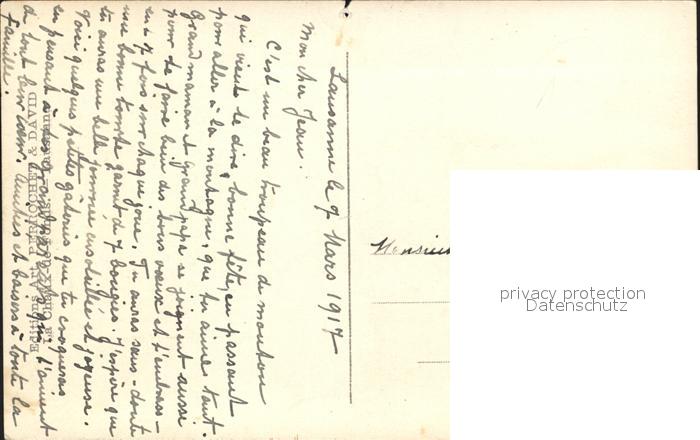 Lausanne le 7 Mars 1917
Mon cher Jean.
C'est un beau troupeau de mouton
qui vient te dire, bonne fête, en passant
pour aller à la montagne, que tu aimes tant.
Grand'maman et grand'papa se joignent aussi
pour te faire bien des bons vœux et t'embrass-
ent 7 fois sur chaque joue. Tu auras sans-doute
une bonne tourte garnit de 7 bougies. J'espère que
tu auras une belle journée ensoleillée et joyeuse.
Voici quelques petites gâteries que tu croqueras
en pensant à tes grand qui t'aiment
de tout leur cœur. Amitiés et baisers à toute la
famille.
Editions Art. PERROCHET & DAVID
Monsieur
privacy protection
Datenschutz